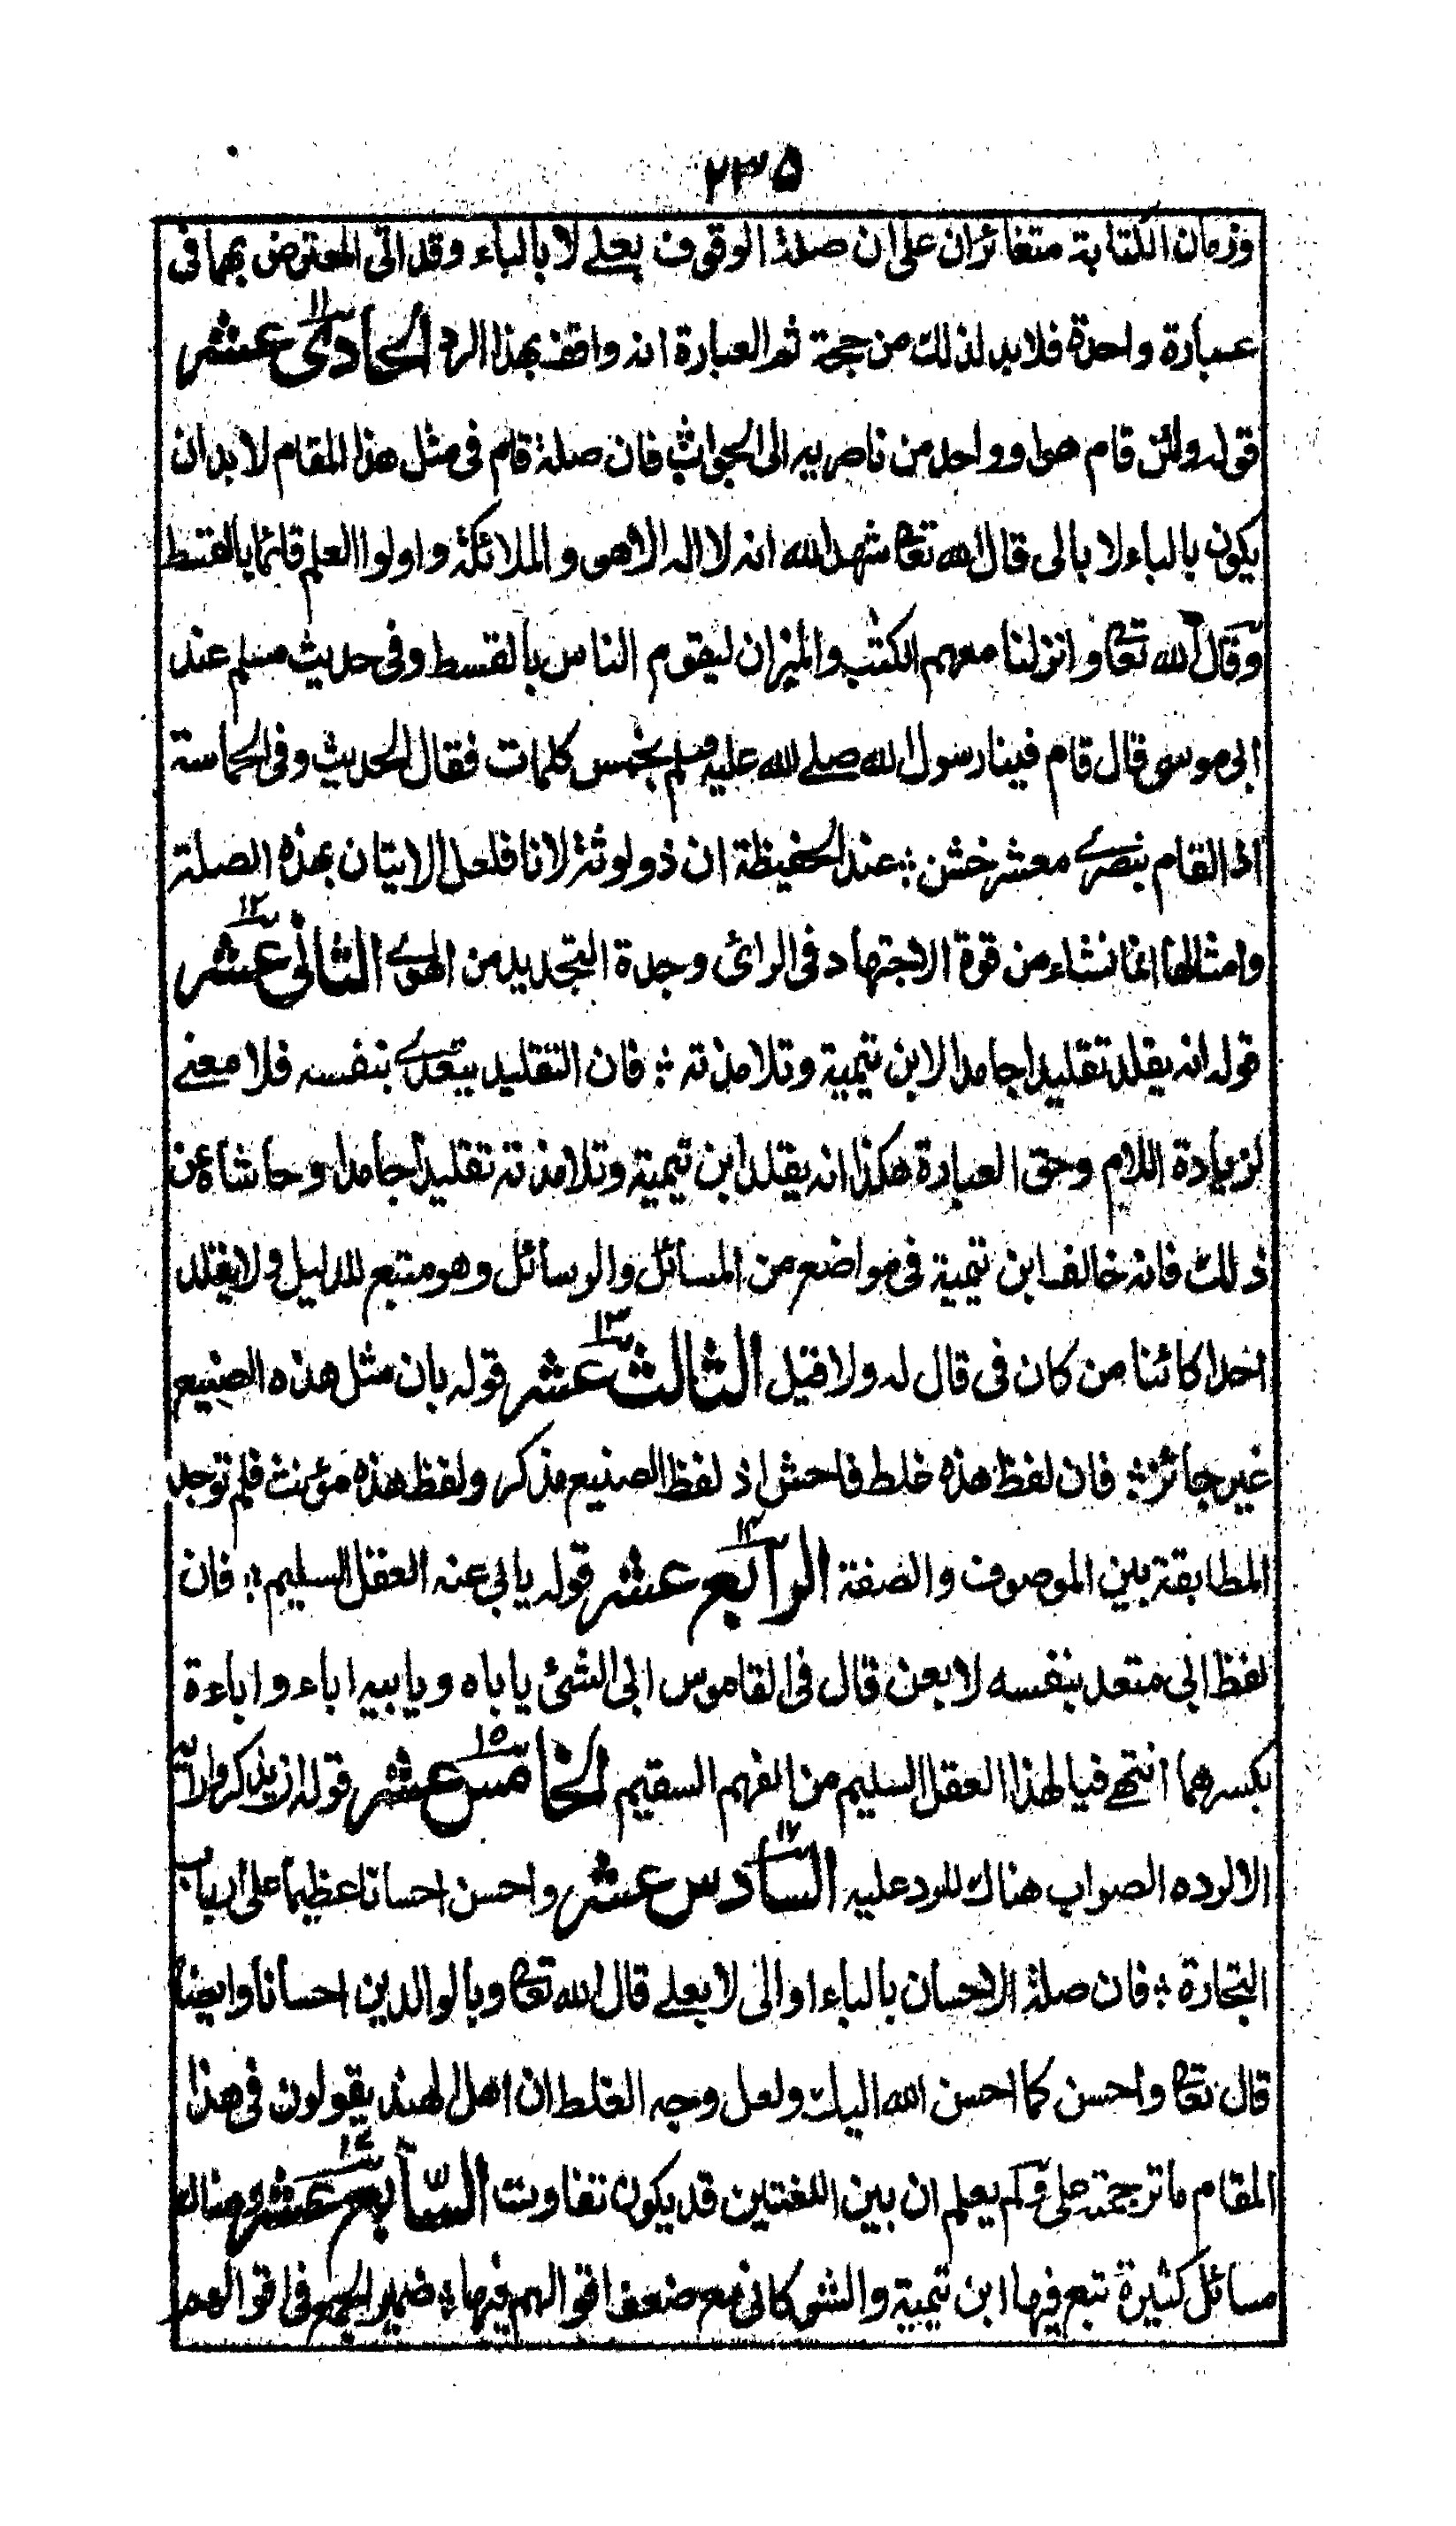 ٢٣٥
وزمان الكتابة متغائران على ان صلة الوقوف بعلى لا بالباء وقد اتى المعترض بهما فى
عبارة واحدة فلابد لذلك من حجة ثم العبارة انه واقف بهذا الرد الحادى عشر ١١
قوله ولئن قام هو او واحد من ناصريه الى الجواب فان صلة قام فى مثل هذا المقام لا بد ان
يكون بالباء لا بالى قال الله تعا شهد الله انه لا اله الا هو والملائكة واولوا العلم قائما بالقسط
وقال الله تعا وانزلنا معهم الكتب والميزان ليقوم الناس بالقسط وفى حديث مسلم عند
ابى موسى قال قام فينا رسول الله صلى الله عليه وسلم بخمس كلمات فقال الحديث وفى الحماسة
اذا لقام بنصرى معشر خشن ؛ عند الحفيظة ان ذو لوثة لانا فلعل الاتيان بهذه الصلة
وامثالها انما نشاء من قوة الاجتهاد فى الرائ وجدة التجديد من الهوى الثانى عشر ١٢
قوله انه يقلد تقليدا جامدا لابن تيمية وتلامذته ؛ فان التقليد يتعدى بنفسه فلا معنى
لزيادة اللام وحق العبارة هكذا انه يقلد ابن تيمية وتلامذته تقليدا جامدا وحاشاه عن
ذلك فانه خالف ابن تيمية فى مواضع من المسائل والرسائل وهو متبع للدليل ولا يقلد
احدا كائنا من كان فى قال له ولا قيل الثالث عشر ١٣ قوله بان مثل هذه الصنيع
غير جائز ؛ فان لفظ هذه غلط فاحش اذ لفظ الصنيع مذكر ولفظ هذه مؤنث فلم توجد
المطابقة بين الموصوف والصفة الرابع عشر ١٤ قوله يابى عنه العقل السليم ؛ فان
لفظ ابى متعد بنفسه لا بعن قال فى القاموس ابى الشئ ياباه ويابيه اباء واباءة
بكسرهما انتهى فيا لهذا العقل السليم من الفهم السقيم الخامس عشر ١٥ قوله ان يذكر
الا لرده الصواب هناك للرد عليه السادس عشر ١٦ واحسن احسانا عظيما على ارباب
التجارة ؛ فان صلة الاحسان بالباء او الى لا بعلى قال الله تعا وبالوالدين احسانا وايضا
قال تعا واحسن كما احسن الله اليك ولعل وجه الغلط ان اهل الهند يقولون فى هذا
المقام ما ترجمته على ولم يعلم ان بين اللغتين قد يكون تفاوت السابع عشر ١٧ وهناك
مسائل كثيرة تبع فيها ابن تيمية والشوكانى مع ضعف اقوالهم فيها ؛ ضمير الجمع فى اقوالهم